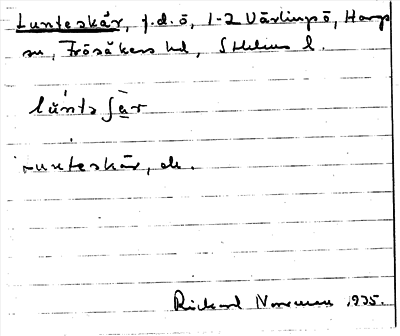 Lunteskär, f.d. ö, 1-2 Värlingsö, Hargs
sn, Frösåkers hd, Sthlms l.
lùnta ʃä̀r
Lunteskär, ds.
Rickard Norman 1935.